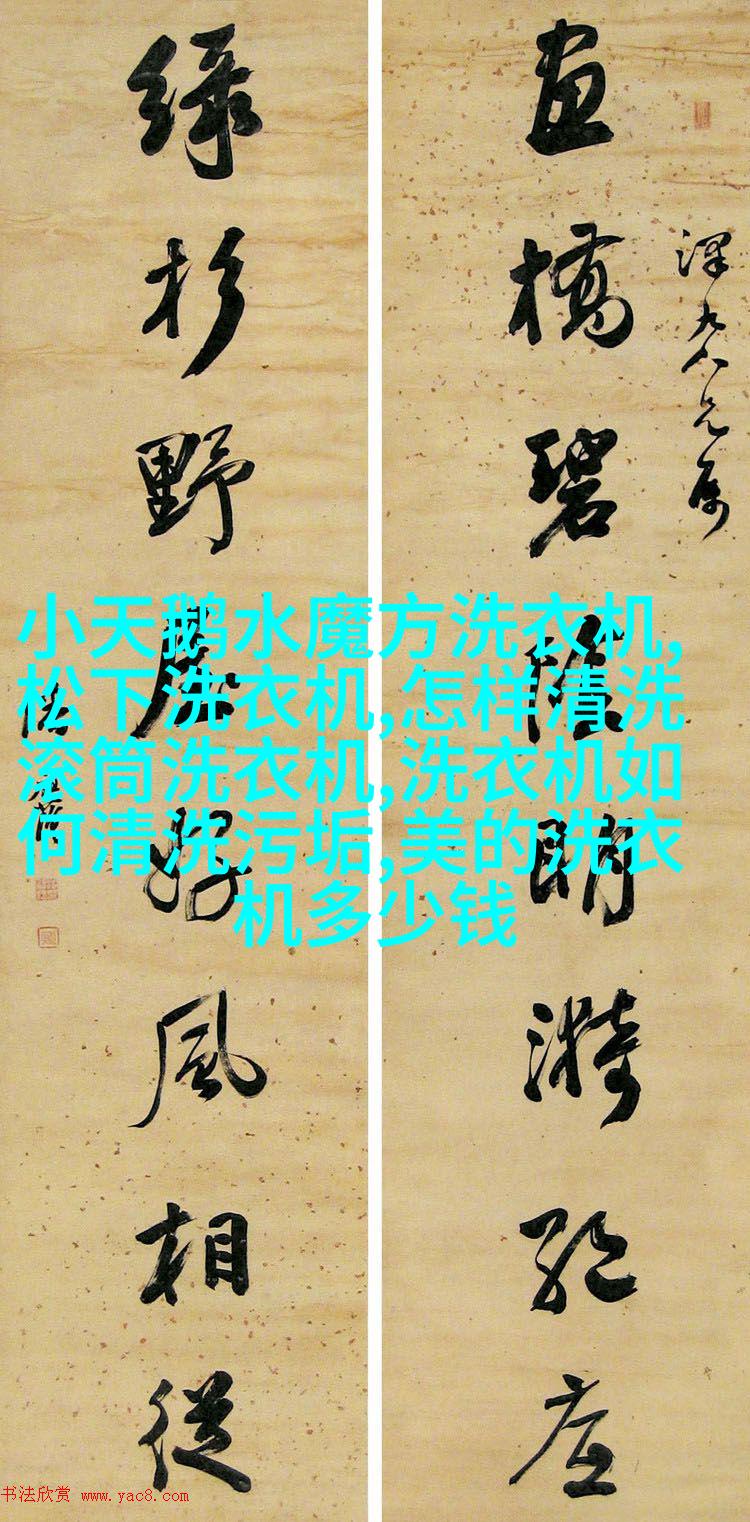 畫橋碧陰明漪絕底
綠杉野屋好風相從
小天鹅水魔方洗衣机,
松下洗衣机,怎样清洗
滚筒洗衣机,洗衣机如
何清洗污垢,美的洗衣
机多少钱
书法欣赏 www.yac8.com